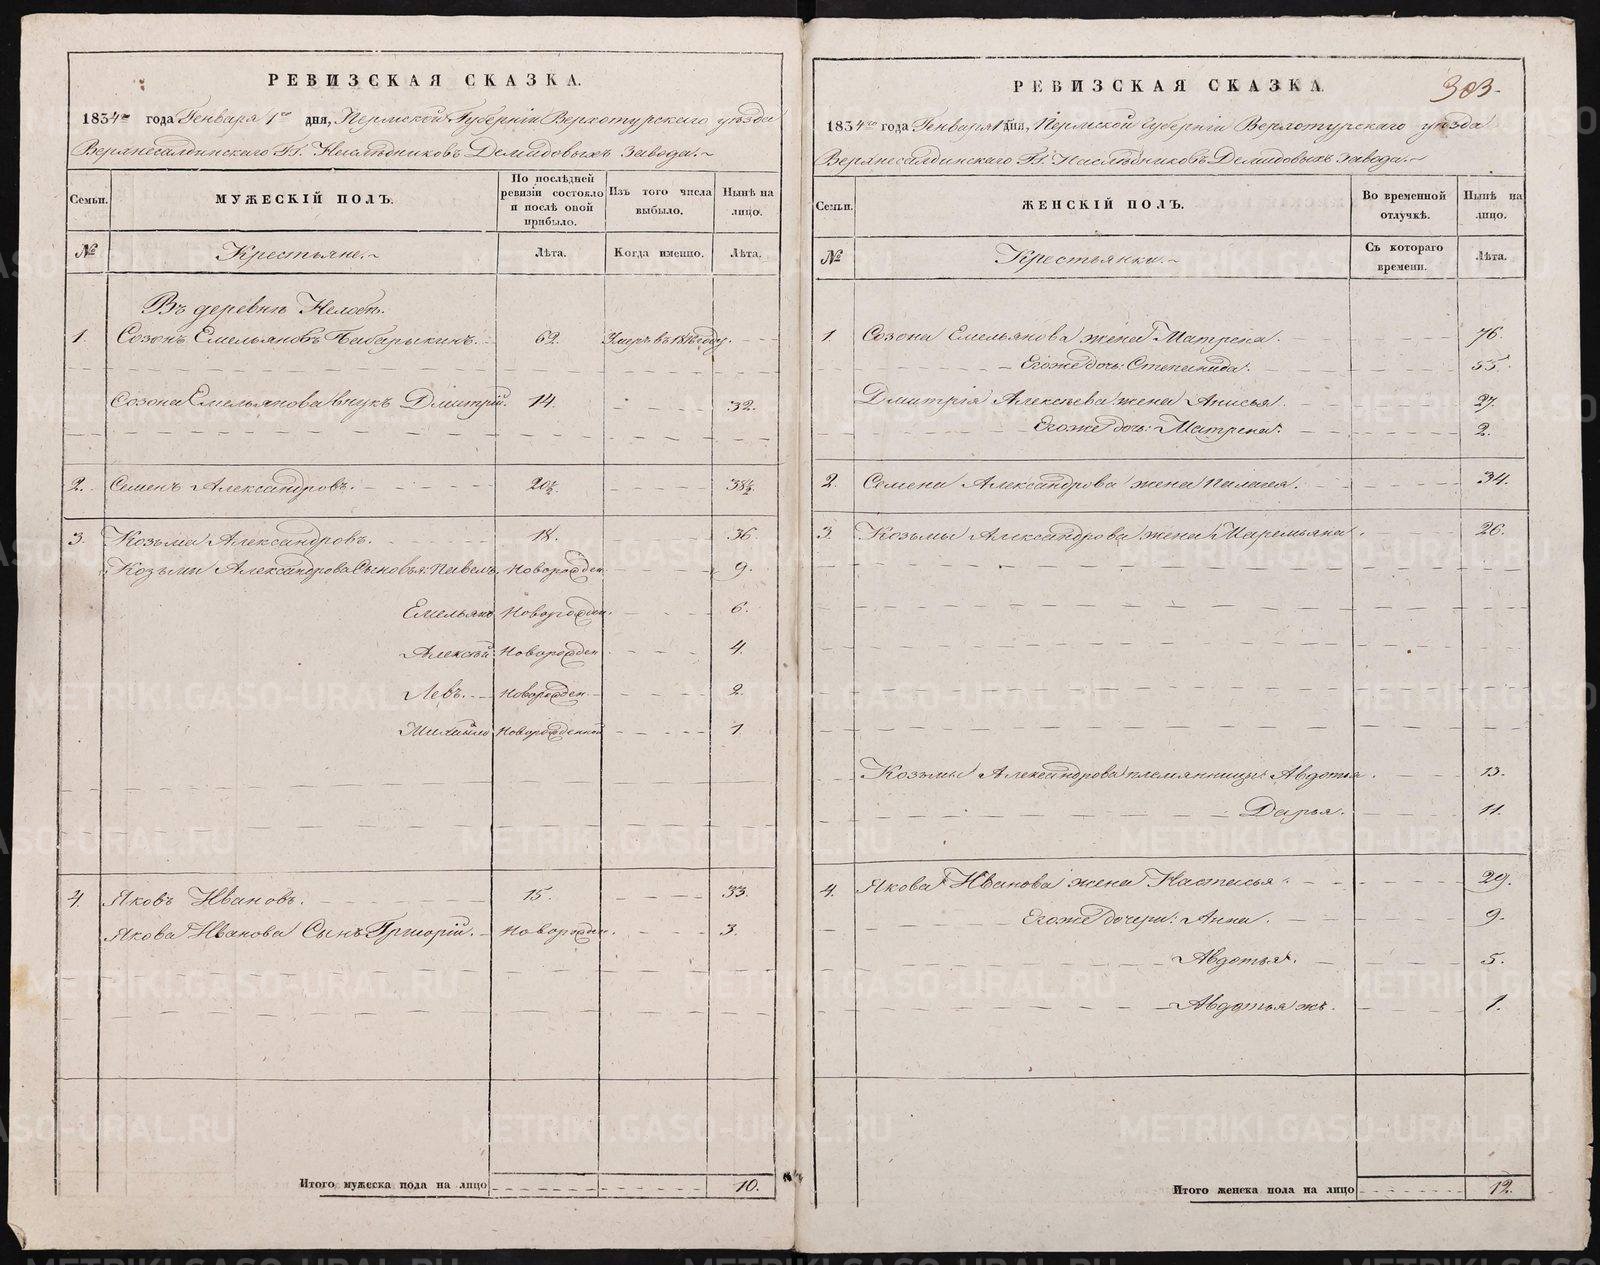 РЕВИЗСКАЯ СКАЗКА.
1834го года Генваря 1го дня, Пермской Губернiи Верхотурскаго уѣзда
Верхнесалдинскаго Гг. Наслѣдниковъ Демидовыхъ завода.
Семьи.
МУЖЕСКIЙ ПОЛЪ.
По послѣдней ревизiи состояло и послѣ оной прибыло.
Изъ того числа выбыло.
Нынѣ на лицо.
№
Крестьяне.
Лѣта.
Когда именно.
Лѣта.
Въ деревнѣ Нелобѣ.
1. Созонъ Емельяновъ Бабарыкинъ. 62 Умеръ въ году.
Созона Емельянова внукъ Дмитрiй. 14. 32.
2. Семенъ Александровъ. 20½ 38½.
3. Козьма Александровъ. 18. 36.
Козьмы Александрова Сыновья: Павелъ, Новорожден 9.
Емельянъ Новорожден. 6.
Алексѣй Новорожден 4.
Левъ. Новорожден. 2.
Михайло Новорожденной 1.
4. Яковъ Ивановъ. 15. 33.
Якова Иванова Сынъ Григорiй. Новорожден. 3.
Итого мужеска пола на лицо 10.
РЕВИЗСКАЯ СКАЗКА.
303.
1834го года Генваря 1 дня, Пермской Губернiи Верхотурскаго уѣзда
Верхнесалдинскаго Гг. Наслѣдниковъ Демидовыхъ завода.
Семьи.
ЖЕНСКIЙ ПОЛЪ.
Во временной отлучкѣ.
Нынѣ на лицо.
№
Крестьянки.
Съ котораго времени.
Лѣта.
1 Созона Емельянова жена Матрена. 76.
Егоже дочь: Степанида. 55.
Дмитрiя Алексѣева жена Анисья. 27.
Егоже дочь: Матрена. 2.
2. Семена Александрова жена Палагея. 34.
3. Козьмы Александрова жена Маремьяна. 26.
Козьмы Александрова племянницы Авдотья. 13.
Дарья. 11.
4. Якова Иванова жена Настасья 29.
Егоже дочери: Анна. 9.
Авдотья. 5.
Авдотья жъ. 1.
Итого женска пола на лицо 12.
METRIKI.GASO-URAL.RU